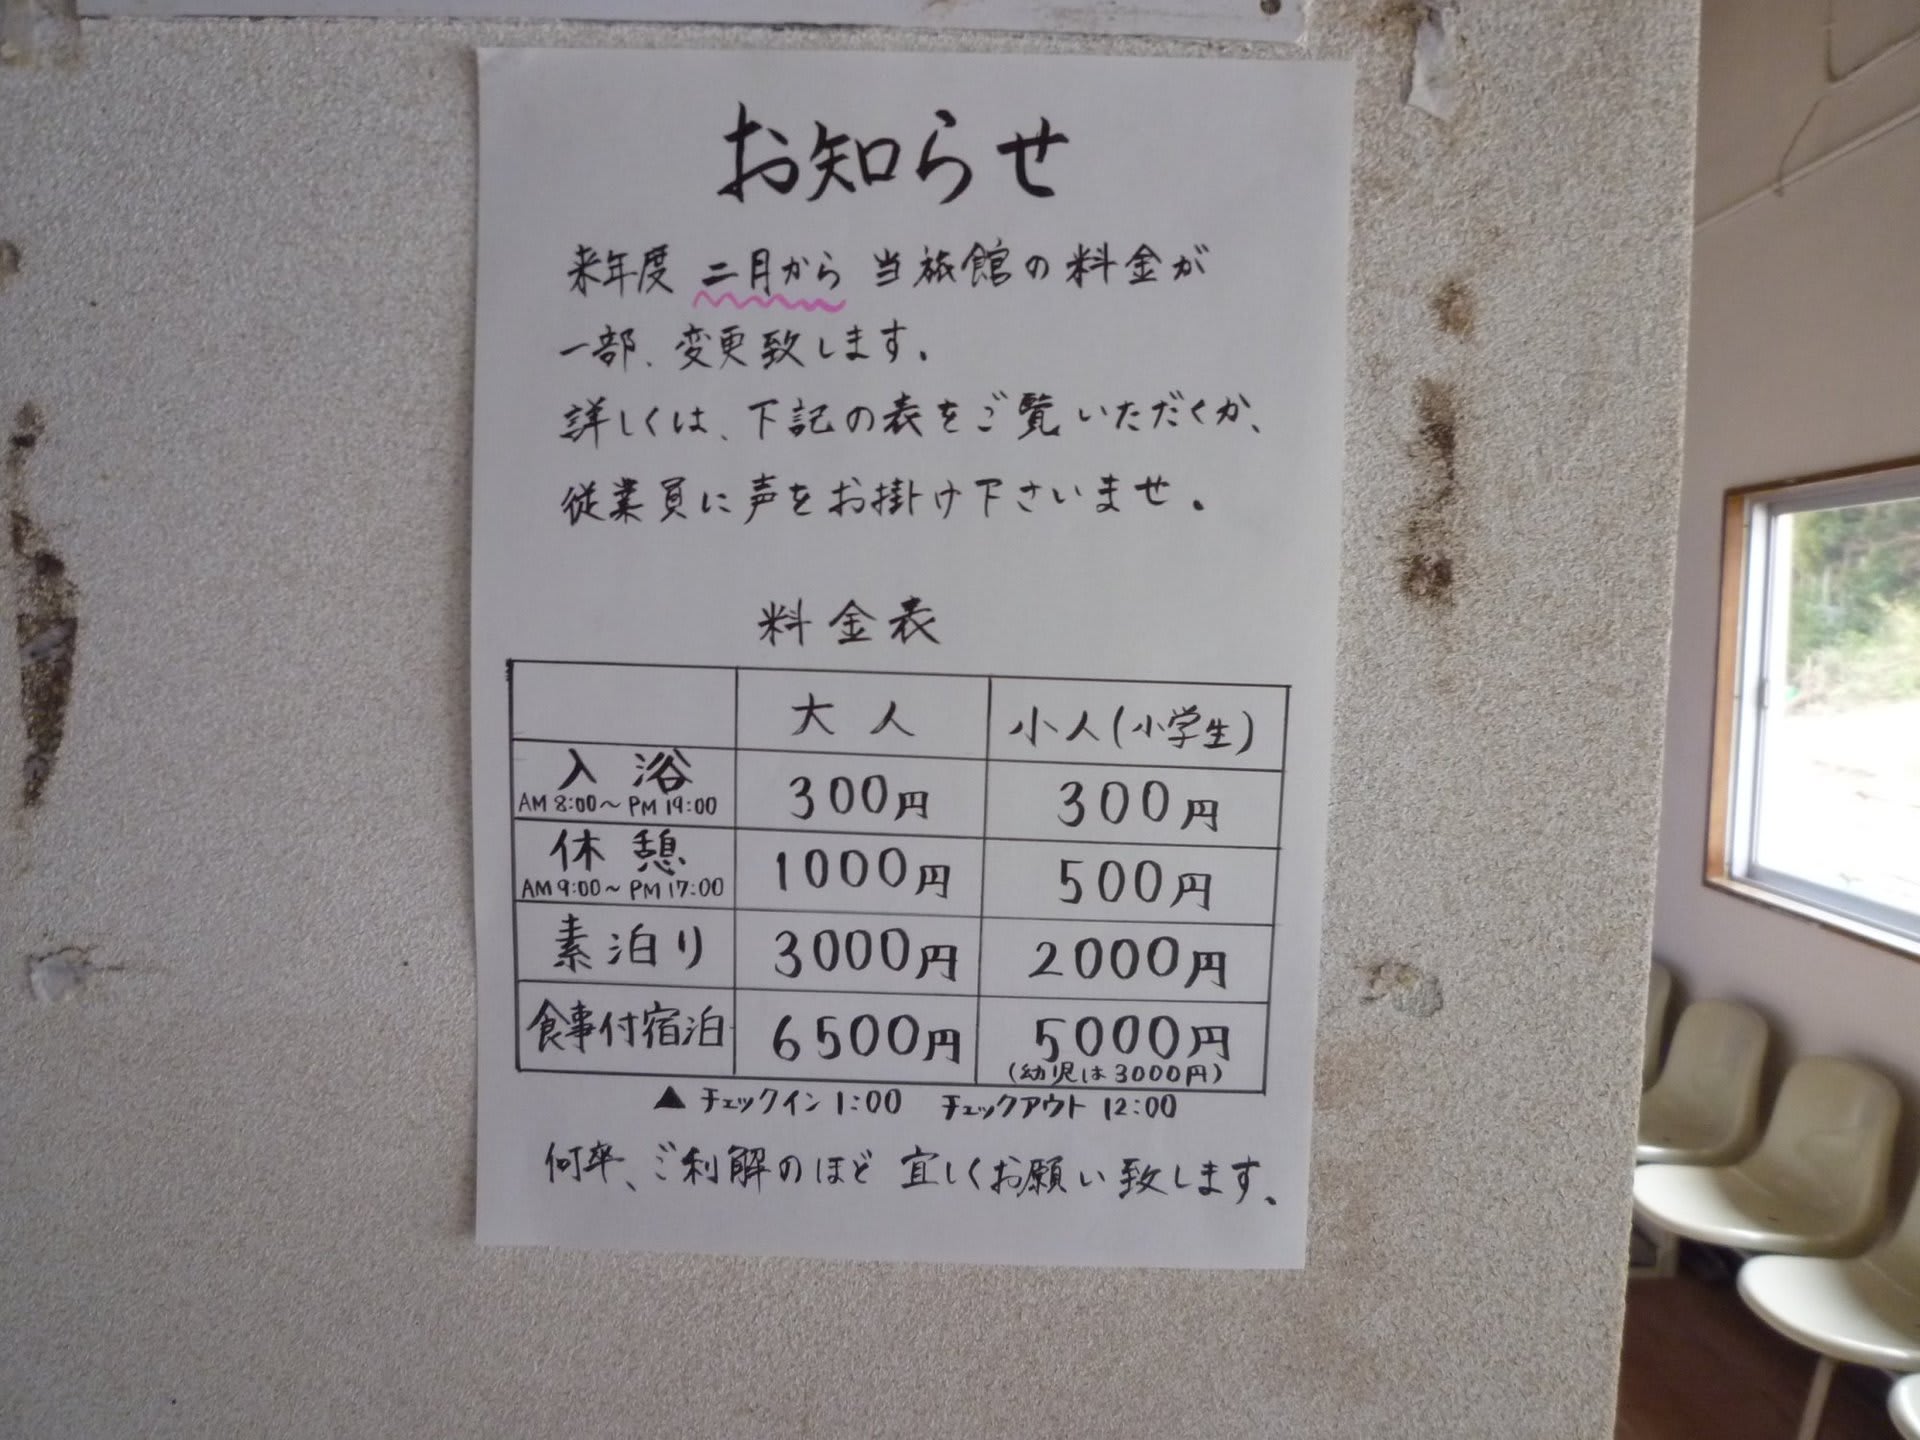 お知らせ
来年度 二月から 当旅館の料金が
一部、変更致します。
詳しくは、下記の表をご覧いただくか、
従業員に声をお掛け下さいませ。
料金表
大人 小人(小学生)
入浴 300円 300円
AM 8:00～PM 19:00
休憩 1000円 500円
AM 9:00～PM 17:00
素泊り 3000円 2000円
食事付宿泊 6500円 5000円
(幼児は3000円)
▲チェックイン 1:00 チェックアウト 12:00
何卒、ご利解のほど 宜しくお願い致します。